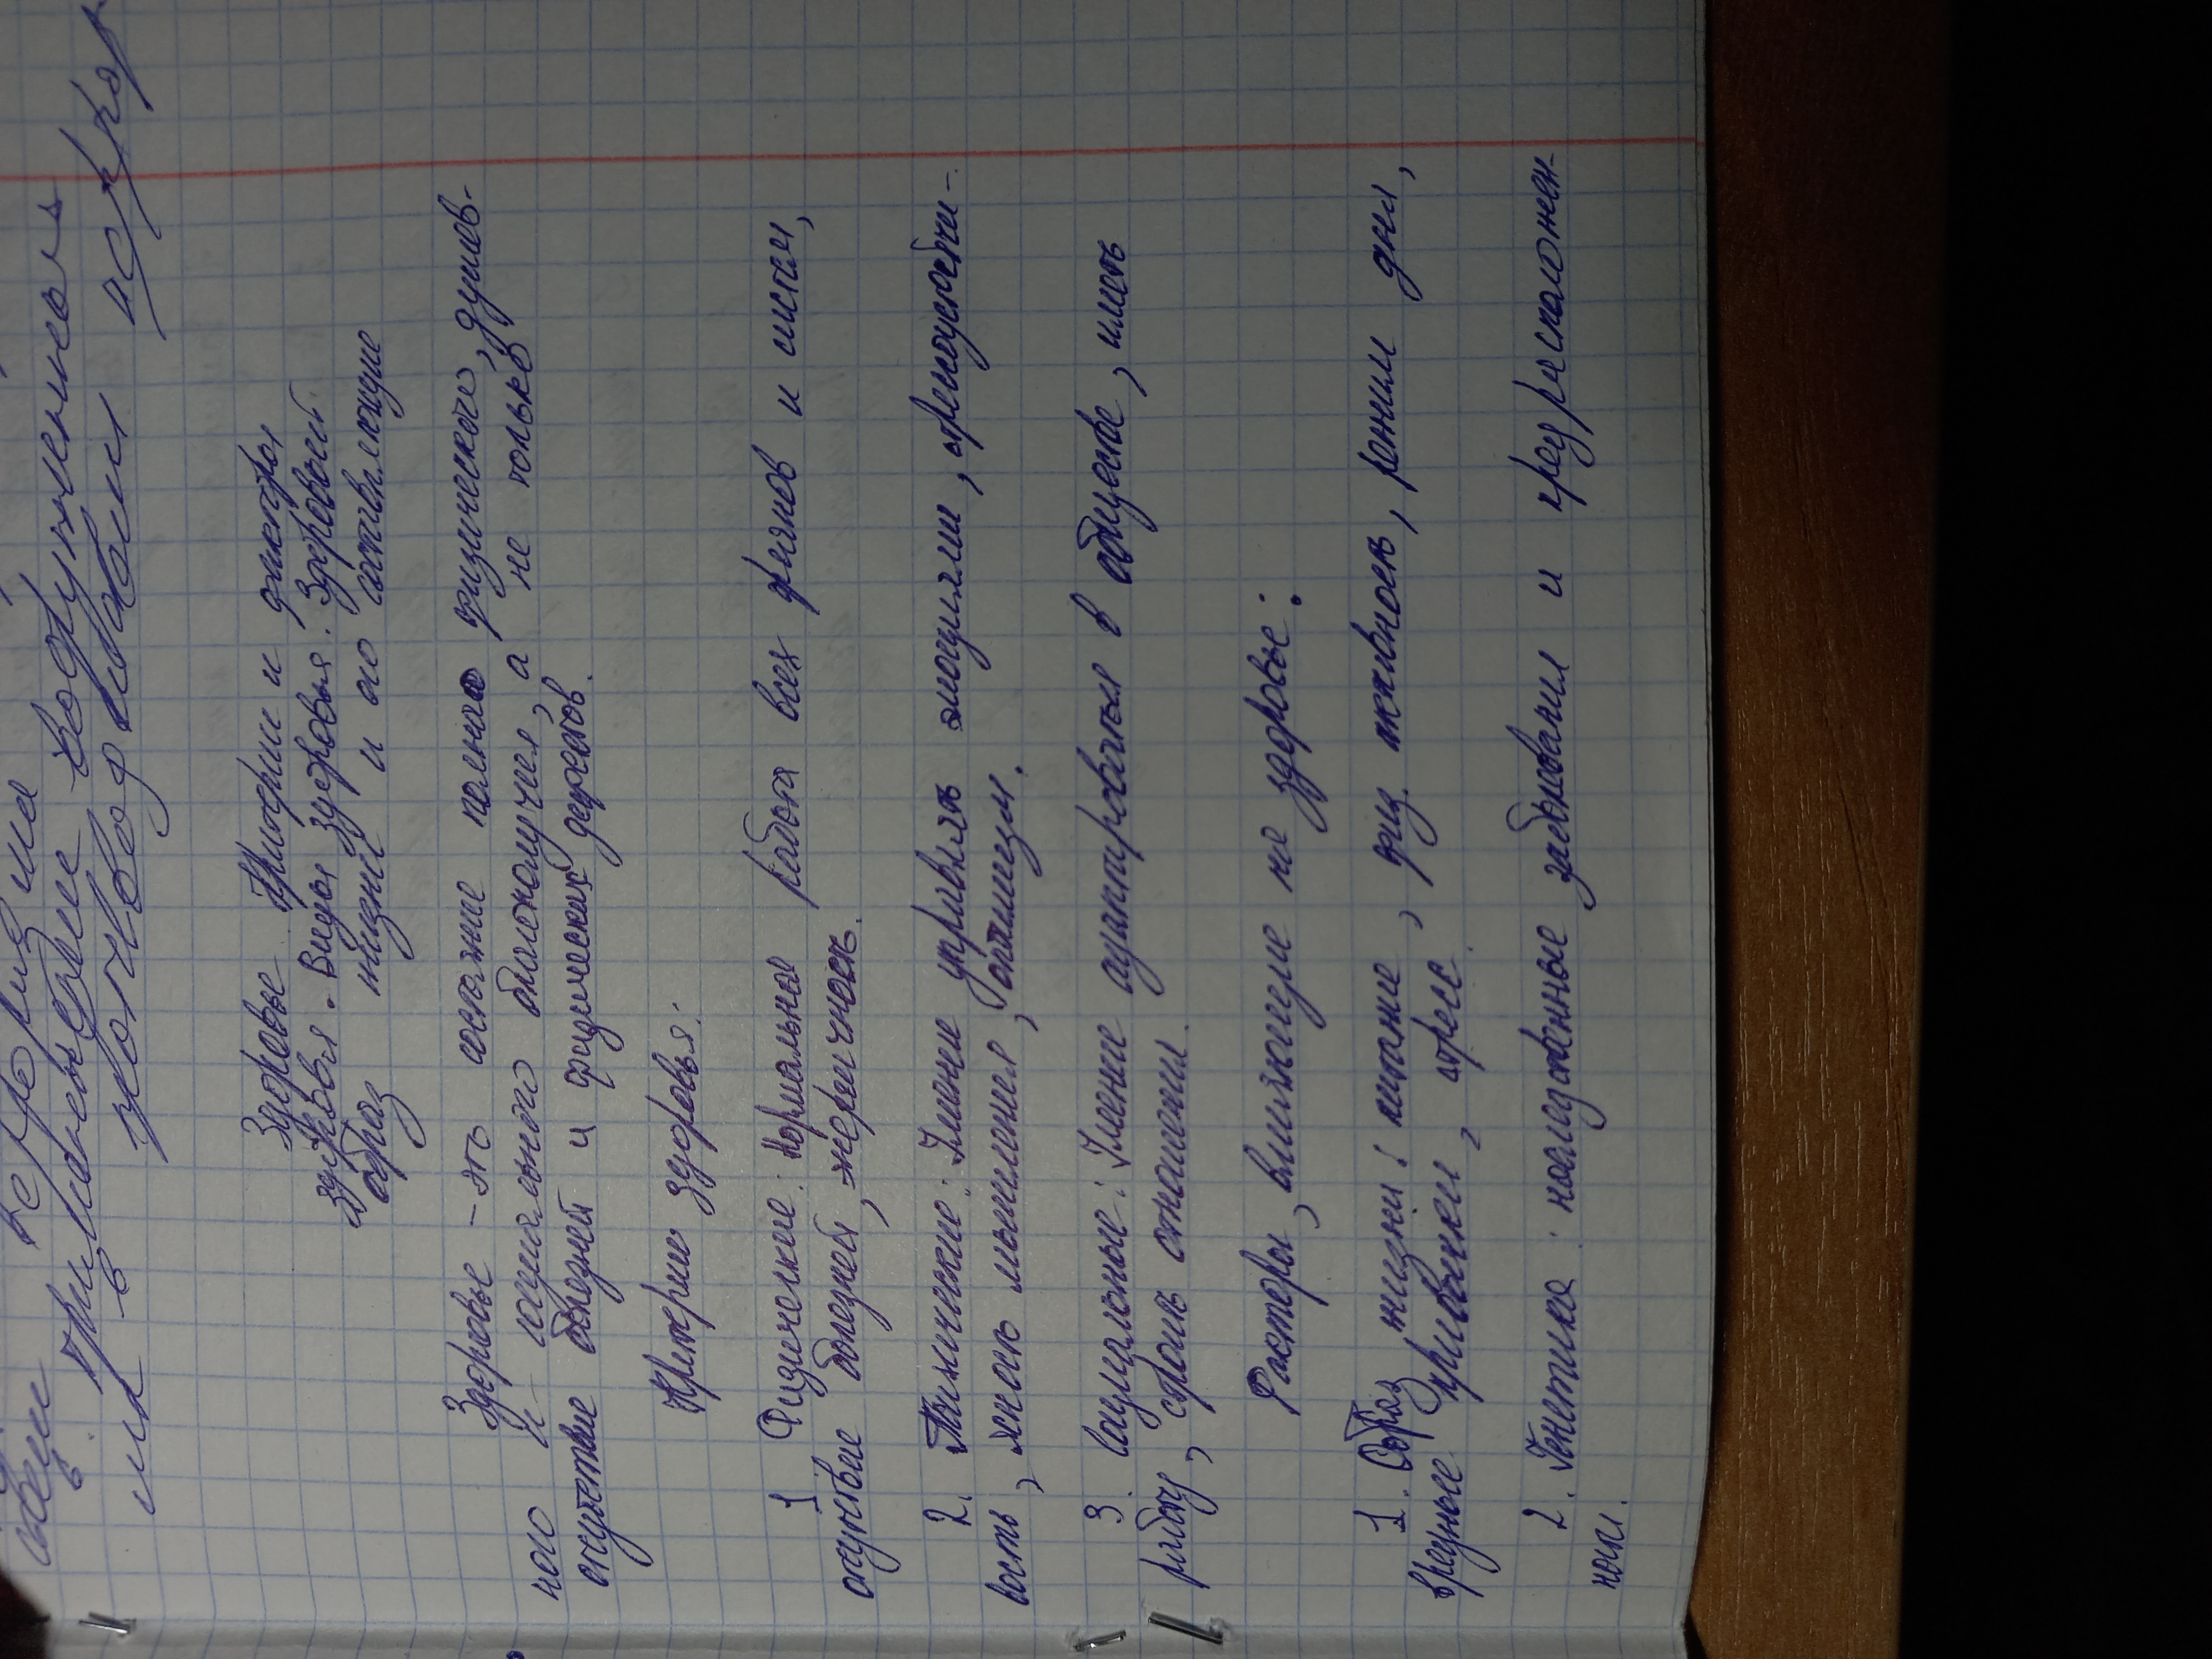 Здоровье. Критерии и факторы
здоровья. Виды здоровья. Здоровый
образ жизни и его составляющие
Здоровье - это состояние полного физического, душев-
ного и социального благополучия, а не только
отсутствие болезней и физических дефектов.
Критерии здоровья:
1 Физические: Нормальная работа всех органов и систем,
отсутствие болезней, энергичность.
2. Психические: Умение управлять эмоциями, стрессоустойчи-
вость, ясность мышления, оптимизм.
3. Социальные: Умение адаптироваться в обществе, иметь
работу, строить отношения.
Факторы, влияющие на здоровье:
1. Образ жизни: питание, физ. активность, режим дня,
вредные привычки, стресс.
2. Генетика: наследственные заболевания и предрасположен-
ности.